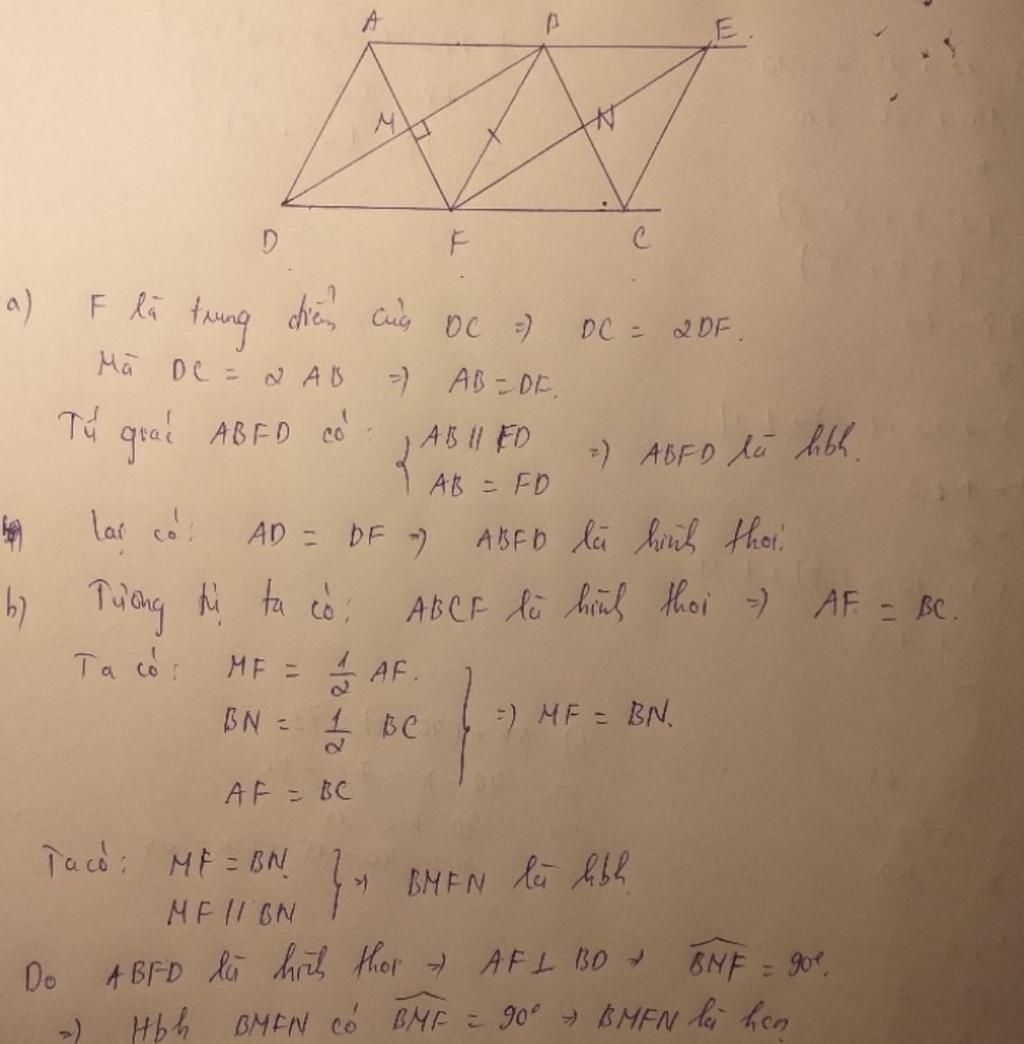 A B E
M N
D F C
a) F là trung điểm của DC => DC = 2DF.
Mà DC = 2AB => AB = DF.
Tứ giác ABFD có: { AB // FD => ABFD là hbh.
AB = FD
Lại có: AD = DF => ABFD là hình thoi.
b) Tương tự ta có: ABCF là hình thoi => AF = BC.
Ta có: MF = 1/2 AF.
BN = 1/2 BC } => MF = BN.
AF = BC
Ta có: MF = BN } => BMFN là hbh.
MF // BN
Do ABFD là hình thoi => AF ⊥ BD => \widehat{BMF} = 90°.
=) Hbh BMFN có \widehat{BMF} = 90° => BMFN là hcn